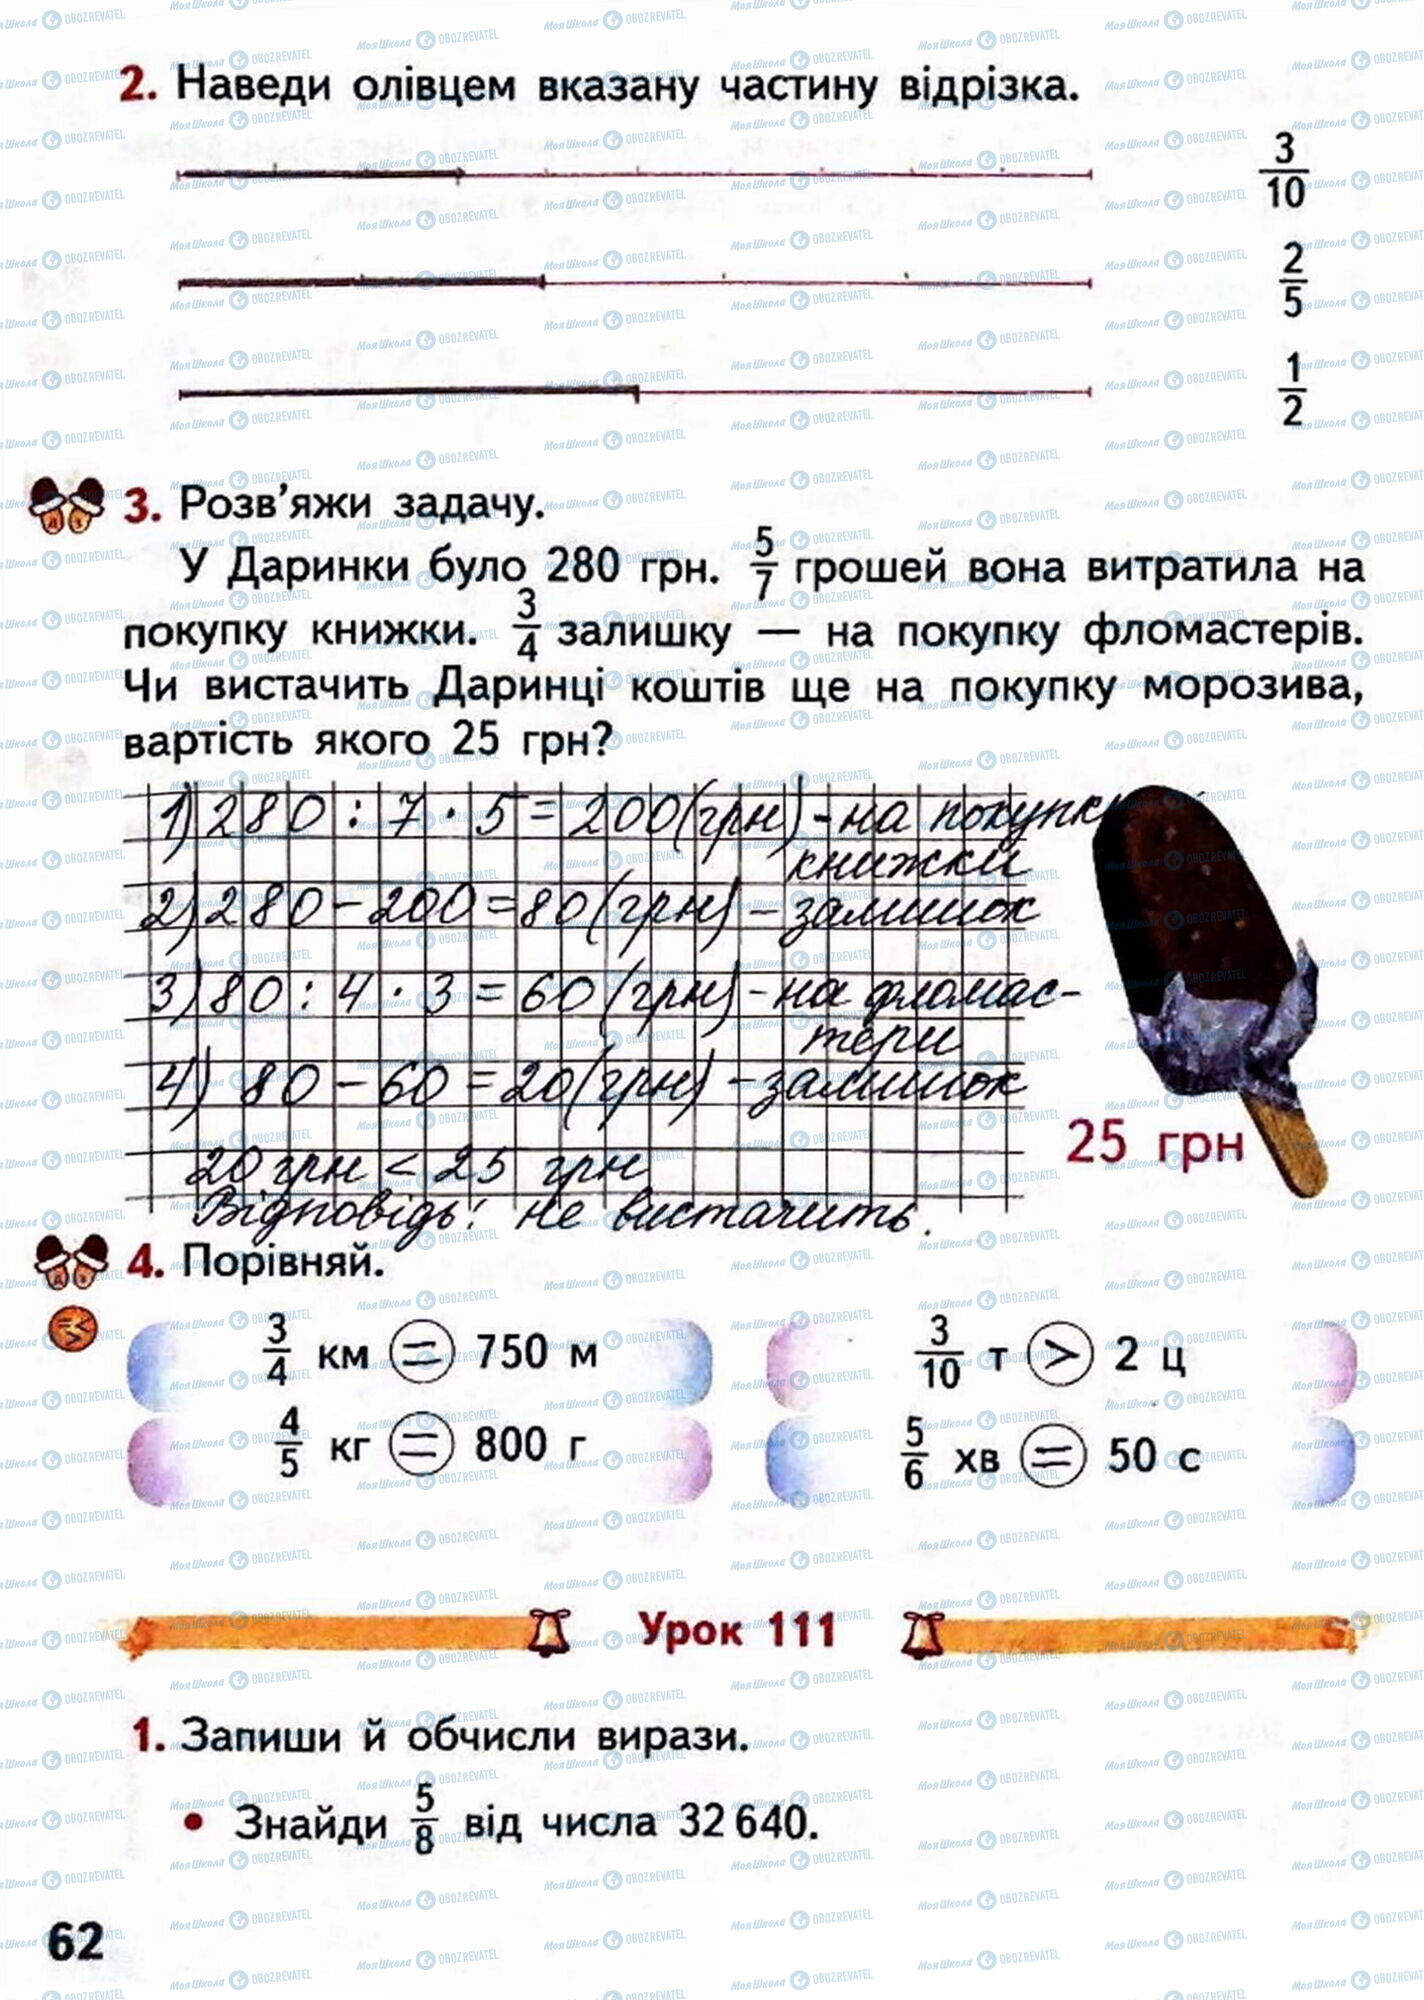 2. Наведи олівцем вказану частину відрізка.
3/10
2/5
1/2
3. Розв'яжи задачу.
У Даринки було 280 грн. 5/7 грошей вона витратила на
покупку книжки. 3/4 залишку — на покупку фломастерів.
Чи вистачить Даринці коштів ще на покупку морозива,
вартість якого 25 грн?
1) 280 : 7 · 5 = 200 (грн) - на покупк
книжки
2) 280 - 200 = 80 (грн) - залишок
3) 80 : 4 · 3 = 60 (грн) - на фломас-
тери
4) 80 - 60 = 20 (грн) - залишок
20 грн < 25 грн
Відповідь: не вистачить.
25 грн
4. Порівняй.
3/4 км = 750 м
3/10 т > 2 ц
4/5 кг = 800 г
5/6 хв = 50 с
Урок 111
1. Запиши й обчисли вирази.
• Знайди 5/8 від числа 32 640.
62
МояШкола OBOZREVATEL